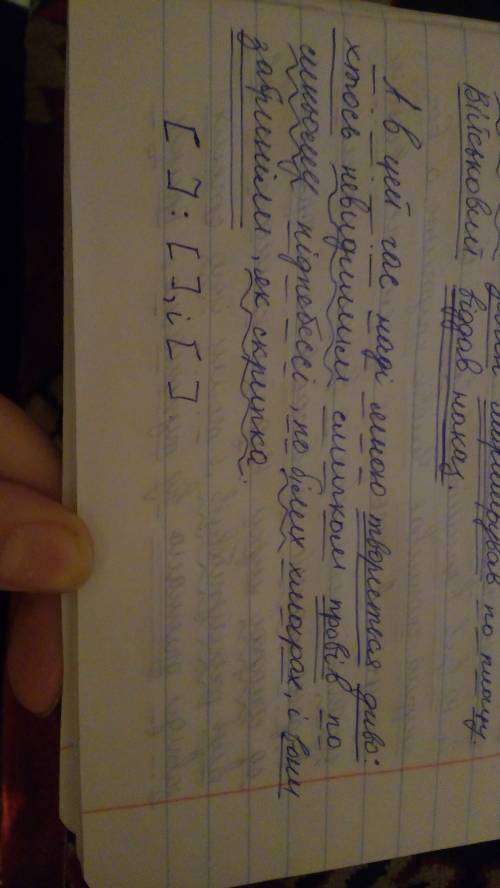 марширував по плацу.
Військовий віддав наказ.
А в цей час наді мною твориться диво:
хтось невидимим смичком провів по
синьому піднебессі, по білих хмарах, і вони
забриніли, як скрипка.
[ ] : [ ], і [ ].